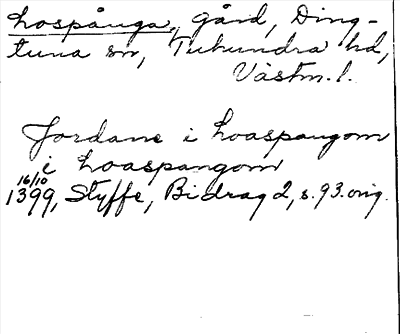 Hospånga, gård, Ding-
tuna sn, Tuhundra hd,
Västm. l.
Jordane i hoaspangom
i hoaspangom
16/10
1399, Styffe, Bidrag 2, s. 93. orig.